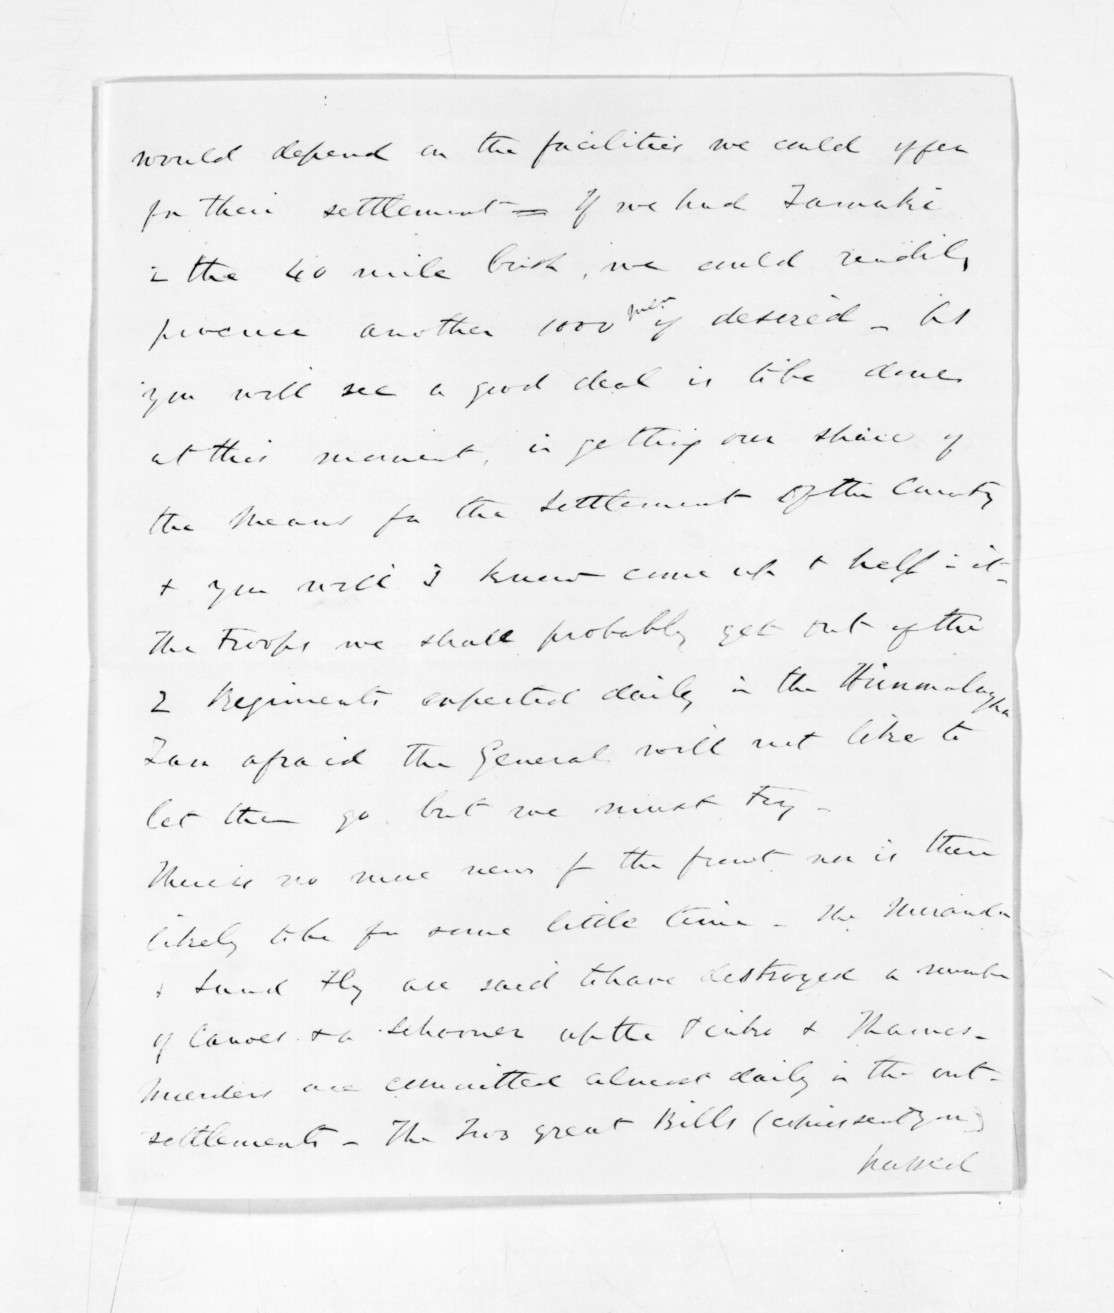 would depend on the facilities we could offer
for their settlement = If we had Tamaki
& the 40 mile bush, we could readily
procure another 1000 if desired -
you will see a good deal is to be done
at this moment, in getting our share of
the means for the settlement of the Country
& you will I know come up & help in it -
The Troops we shall probably get out of the
2 Regiments expected daily in the Himmalaygha
I am afraid the General will not like to
let them go but we must try -
There is no more news f the front nor is there
likely to be for some little time - The Miranda
& Sand Fly are said to have destroyed a number
of Canoes & a Schooner up the Piako & Thames -
Murders are committed almost daily in the out-
settlements - The Two great Bills (copies sent you)
passed